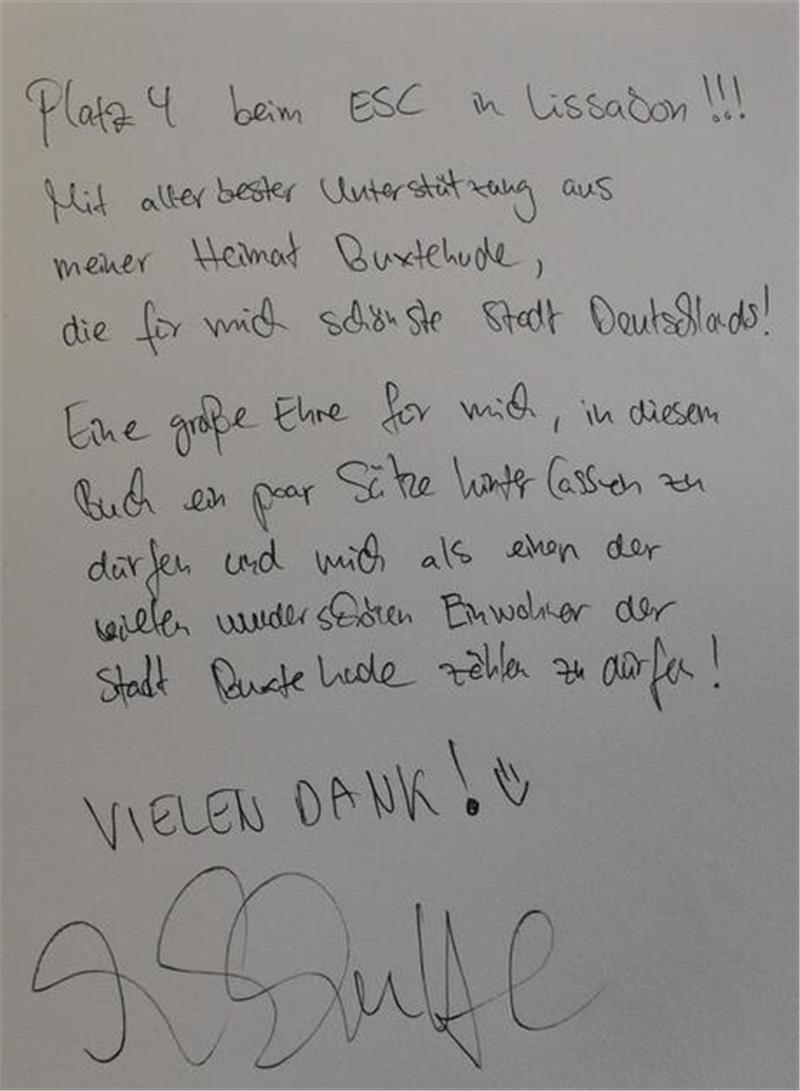 Platz 4 beim ESC in Lissabon!!!
Mit allerbester Unterstützung aus
meiner Heimat Buxtehude,
die für mich schönste Stadt Deutschlands!
Eine große Ehre für mich, in diesem
Buch ein paar Sätze hinterlassen zu
dürfen und mich als einen der
vielen wunderschönen Einwohner der
Stadt Buxtehude zählen zu dürfen!
VIELEN DANK!